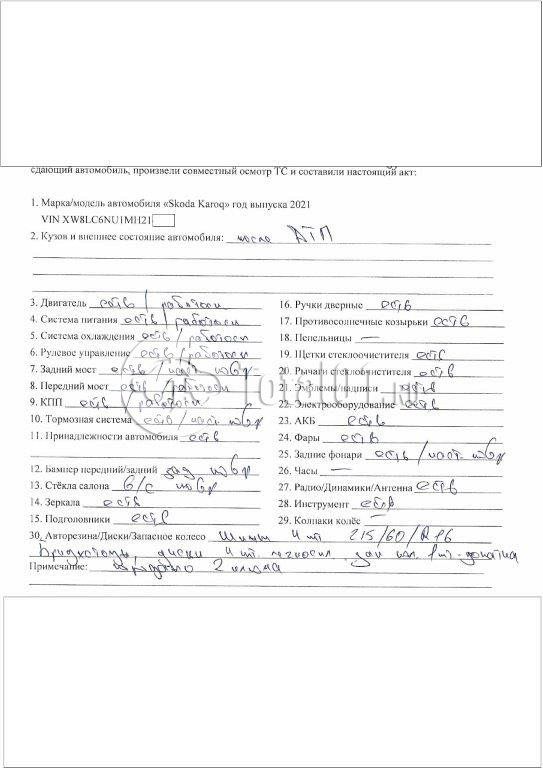 сдающий автомобиль, произвели совместный осмотр ТС и составили настоящий акт:
1. Марка/модель автомобиля «Skoda Karoq» год выпуска 2021
VIN XW8LC6NU1MH21
2. Кузов и внешнее состояние автомобиля: после ДТП
3. Двигатель есть / работоси
4. Система питания есть / работоси
5. Система охлаждения есть / работоси
6. Рулевое управление есть / работоси
7. Задний мост есть / част. повр
8. Передний мост есть / работоси
9. КПП есть / работоси
10. Тормозная система есть / част. повр
11. Принадлежности автомобиля есть
12. Бампер передний/задний зад повр
13. Стёкла салона б/с повр
14. Зеркала есть
15. Подголовники есть
16. Ручки дверные есть
17. Противосолнечные козырьки есть
18. Пепельницы —
19. Щетки стеклоочистителя есть
20. Рычаги стеклоочистителя есть
21. Эмблемы/надписи есть
22. Электрооборудование есть
23. АКБ есть
24. Фары есть
25. Задние фонари есть / част. повр
26. Часы —
27. Радио/Динамики/Антенна есть
28. Инструмент есть
29. Колпаки колёс —
30. Авторезина/Диски/Запасное колесо Шины 4 шт 215/60/R16
диски 4 шт.
Примечание: 2 ключа